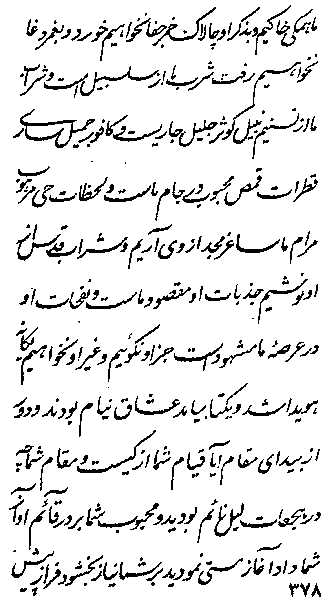 ما همگی خاکیم و بذکر او چالاک خبر جفا نخواهیم خورد و بغمر غا
نخواهیم رفت شرب ما از سلسبیل است و شراب
ما از تسنیم نبیل کوثر جلیل جاریست و کافور جمیل ساری
قطرات قمص محبوب در جام ماست و لحظات حی مرغوب
مرام ما ساغر مجد از وی آریم و شراب قدس از
او نوشیم جذبات او مقصود ماست و نفحات او
در عرصهٔ ما مشهود است جز او نگوئیم و غیر او نخواهیم یگانه
هویدا شد و یکتا بیامد عشاق نیام بودند و دوست
از بیدای مقام آیا قیام شما از کیست و مقام شما چه
در هجعات لیل نائم بودید و محبوب شما بر در قائم او آمد
شما در او آغاز سستی نمودید بر شما نیاز بخشود فراز پیش
۳۷۸